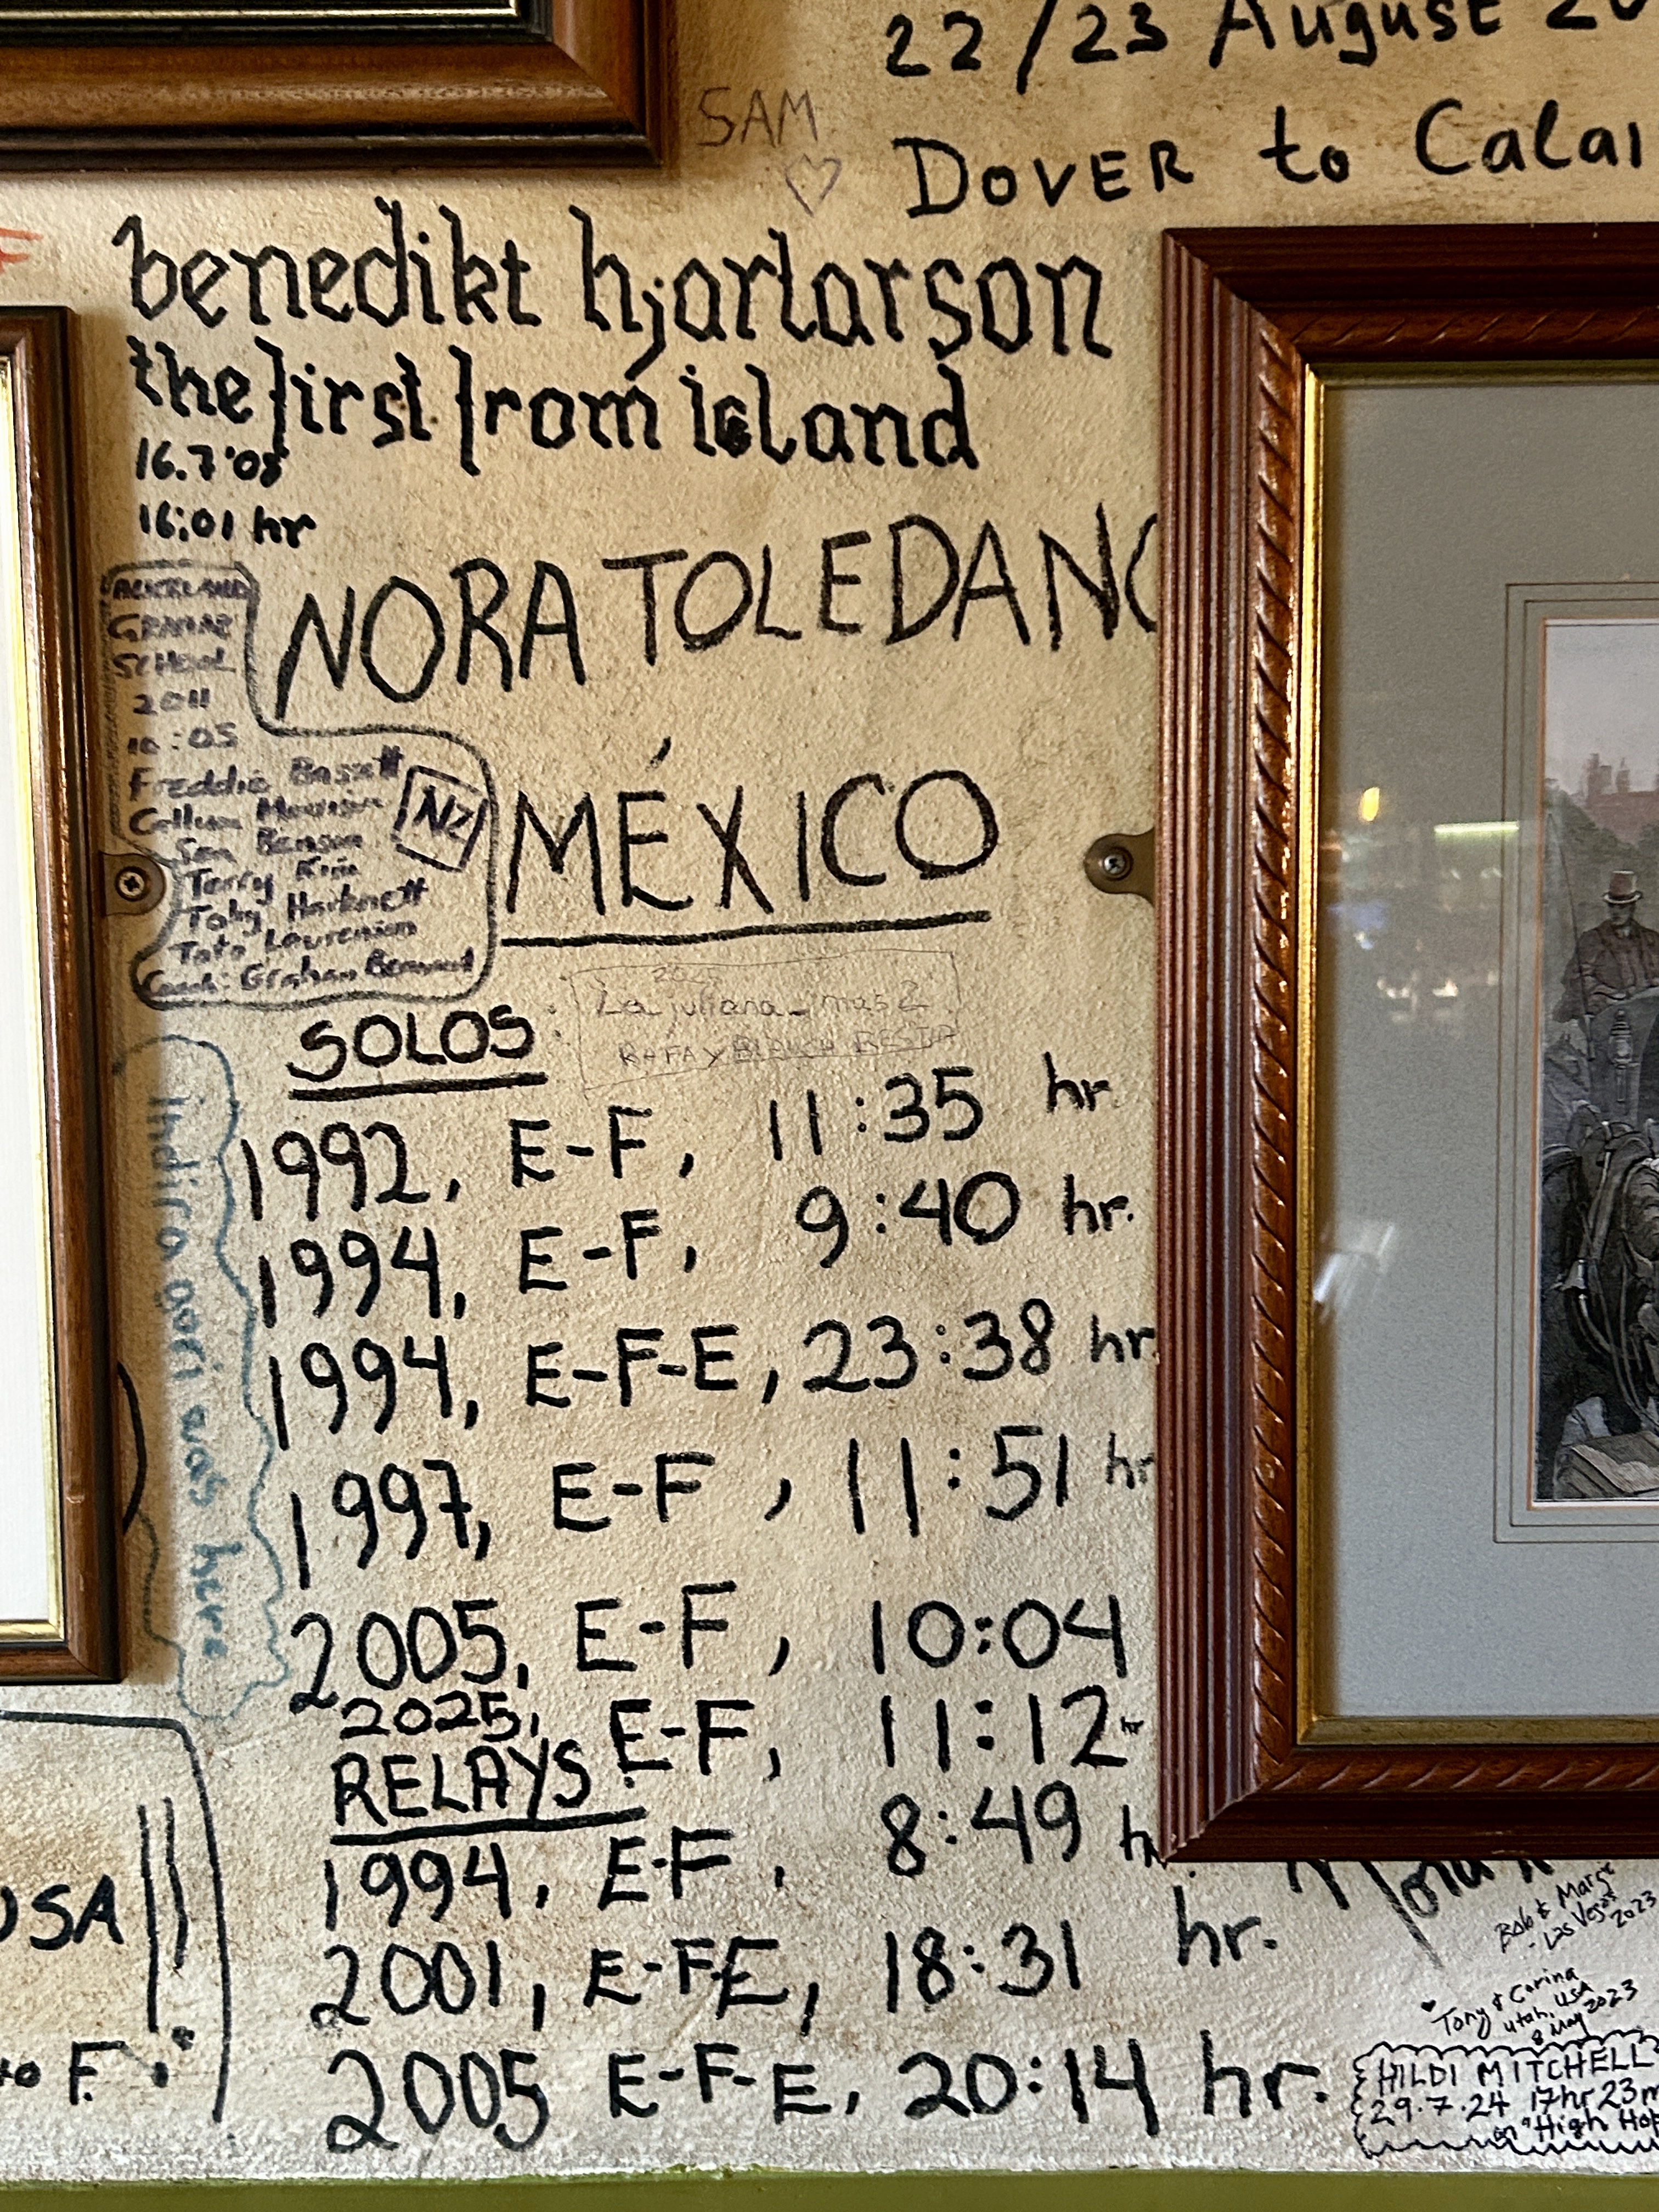 22/23 August 20
SAM
DOVER to Calai
benedikt hjartarson
the first from island
16.7'08
16:01 hr
NORA TOLEDANO
MÉXICO
AUCKLAND
GRAMMAR
SCHOOL
2011
10:05
Freddie Bassett
Callum
Sam Benson
Terry
Toby Harknett
NZ
Coach: Graham
La juliana
RAFA Y BLANCA
SOLOS:
1992, E-F, 11:35 hr.
1994, E-F, 9:40 hr.
1994, E-F-E, 23:38 hr.
1997, E-F, 11:51 hr
2005, E-F, 10:04
2025, E-F, 11:12 hr
RELAYS
1994, E-F, 8:49 h
2001, E-F-E, 18:31 hr.
2005 E-F-E, 20:14 hr.
indira gori was here
USA
to F.
Bob & Marge
- Las Vegas
2023
Tony & Corina
Utah, USA
8 May 2023
HILDI MITCHELL
29.7.24 17hr 23m
on "High Hop